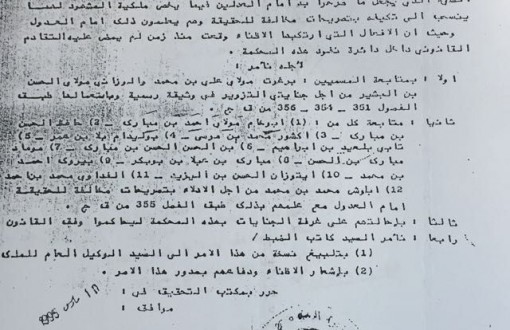 ينسب الى تكيفه بتصريحات مخالفة للحقيقة وهم يعلمون ذلك امام العدول
وحيث ان الافعال التي ارتكبها الاظناء وقعت منذ زمن لم يمض عليه التقادم
القانوني داخل دائرة نفوذ هذه المحكمة .
لهذه نأمر :
اولا : بمتابعة المسميين : برغوت مولاي علي بن محمد والرزاني مولاي الحسن
بن البشير من اجل جنايتي التزوير في وثيقة رسمية واستعمالها طبقا
الفصول 351 – 354 – 356 من ق ج .
ثانيا : متابعة كل من : (1) ابرخام مولاي احمد بن مبارك – 2) حافظ الحسن
بن مبارك – 3) اكشور محمد بن موسى – 4) بوليدام بلا بن عمر – 5)
تابي بلعيد بن ابراهيم – 6) بن الحسن الحسن بن مبارك – 7) موماد
مبارك بن الحسن – 8) مبارك بن جيلا بن بوبكر – 9) بيروك احمد
بن محمد – 10) ايتوزان الحسن بن اليزيد – 11) الغداوي محمد بن احمد
12) ابلوش محمد بن محمد من اجل الادلاء بتصريحات مخالفة للحقيقة
امام العدول مع علمهم بذلك طبقا الفصل 355 من ق ج .
ثالثا : باحالتهم على غرفة الجنايات بهذه المحكمة ليحاكموا وفق القانون
رابعا : نأمر السيد كاتب الضبط :
(1) بتبليغ نسخة من هذا الامر الى السيد الوكيل العام للملك
(2) بإشعار الاظناء ودفاعهم بصدور هذا الامر .
حرر بمكتب التحقيق في :
موافق :
1995